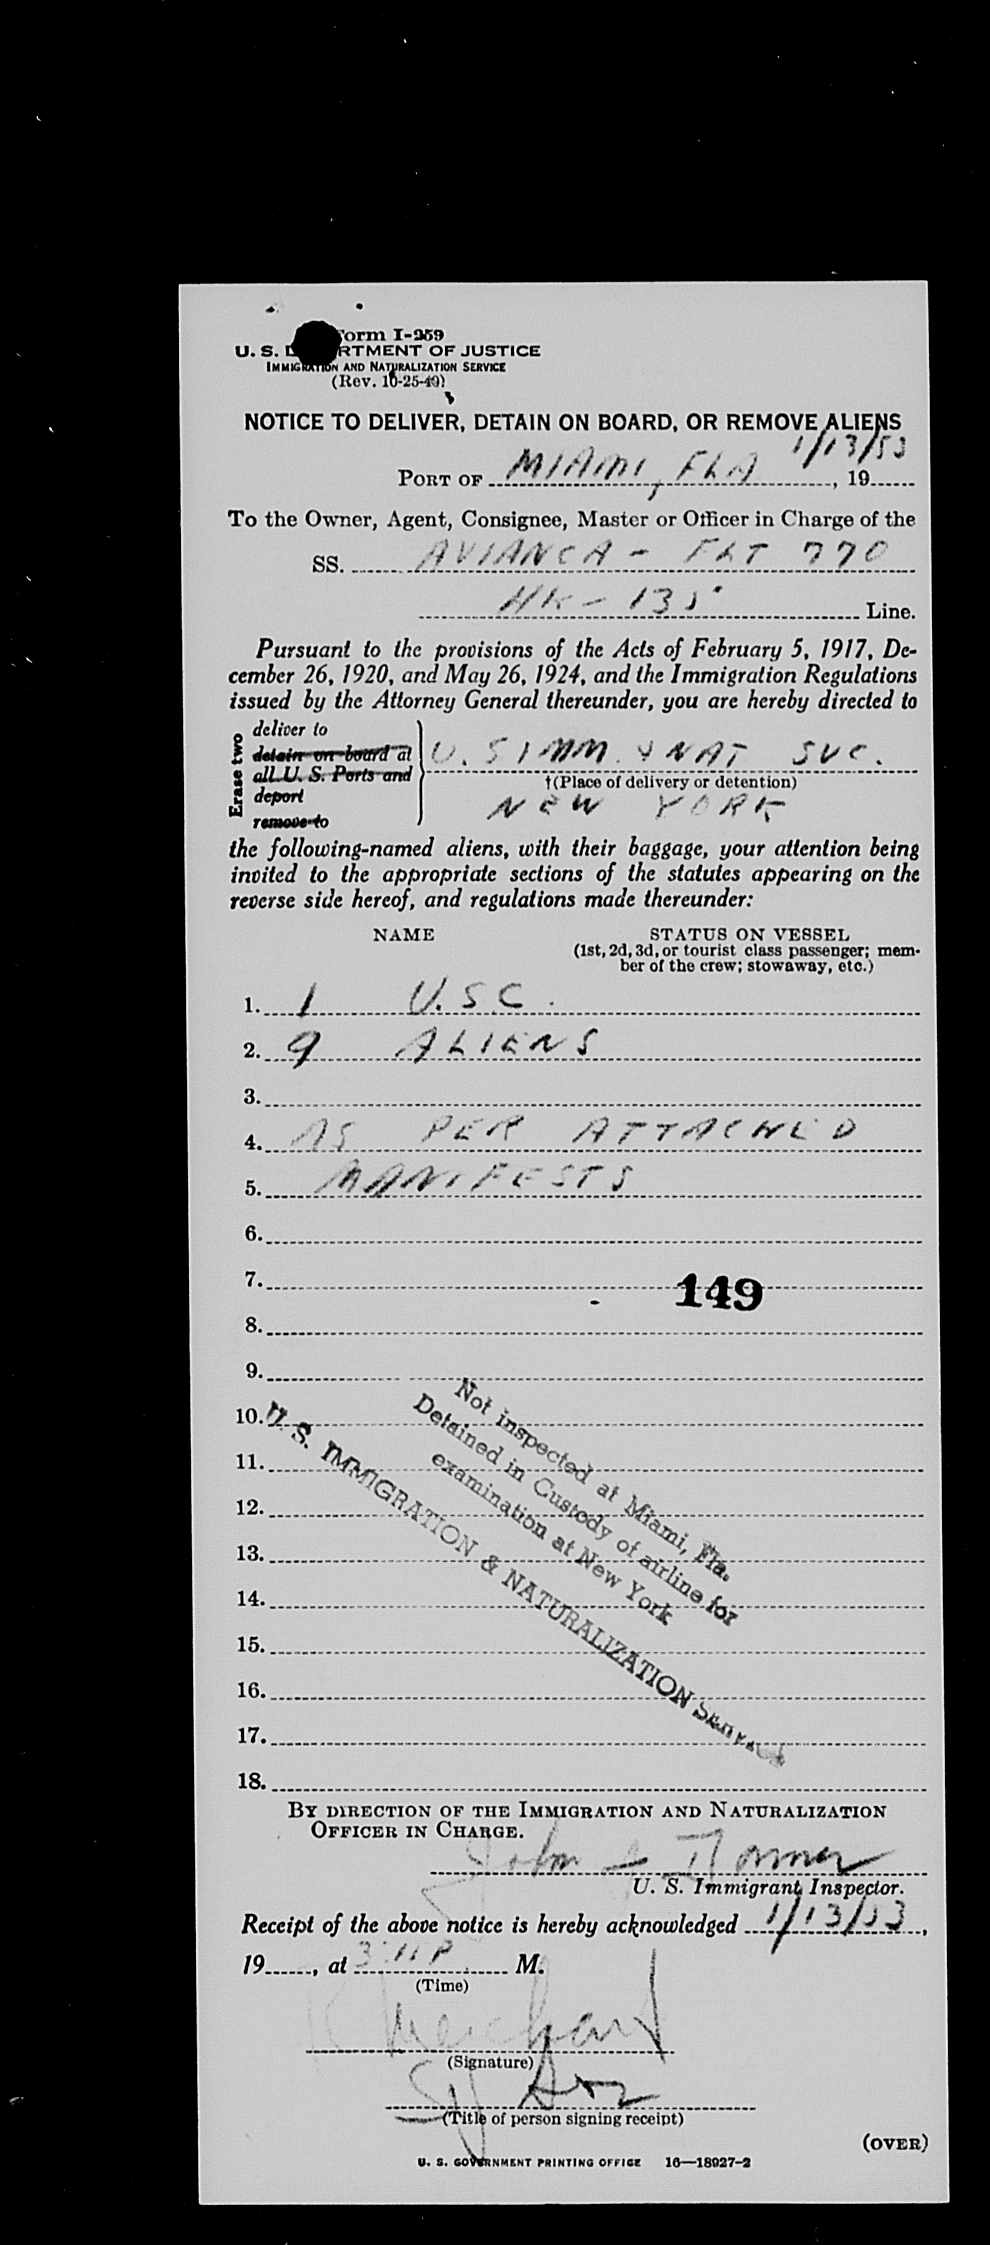 Form I-259
U. S. DEPARTMENT OF JUSTICE
IMMIGRATION AND NATURALIZATION SERVICE
(Rev. 10-25-49)
NOTICE TO DELIVER, DETAIN ON BOARD, OR REMOVE ALIENS
1/13/53
PORT OF MIAMI, FLA , 19
To the Owner, Agent, Consignee, Master or Officer in Charge of the
SS. AVIANCA - FLT 770
HK - 135 Line.
Pursuant to the provisions of the Acts of February 5, 1917, De-
cember 26, 1920, and May 26, 1924, and the Immigration Regulations
issued by the Attorney General thereunder, you are hereby directed to
Erase two
deliver to
detain on board at
all U. S. Ports and
deport
remove to
U. S IMM. & NAT SVC.
†(Place of delivery or detention)
NEW YORK
the following-named aliens, with their baggage, your attention being
invited to the appropriate sections of the statutes appearing on the
reverse side hereof, and regulations made thereunder:
NAME STATUS ON VESSEL
(1st, 2d, 3d, or tourist class passenger; mem-
ber of the crew; stowaway, etc.)
1. 1 U.S.C.
2. 9 ALIENS
3.
4. AS PER ATTACHED
5. MANIFESTS
6.
7. 149
8.
9.
10.
11.
12.
13.
14.
15.
16.
17.
18.
Not inspected at Miami, Fla.
Detained in Custody of airline for
examination at New York
U. S. IMMIGRATION & NATURALIZATION SERVICE
BY DIRECTION OF THE IMMIGRATION AND NATURALIZATION
OFFICER IN CHARGE.
John
U. S. Immigrant Inspector.
Receipt of the above notice is hereby acknowledged 1/13/53,
19, at 3:11 P M.
(Time)
(Signature)
(Title of person signing receipt)
(OVER)
U. S. GOVERNMENT PRINTING OFFICE 16—18927-2